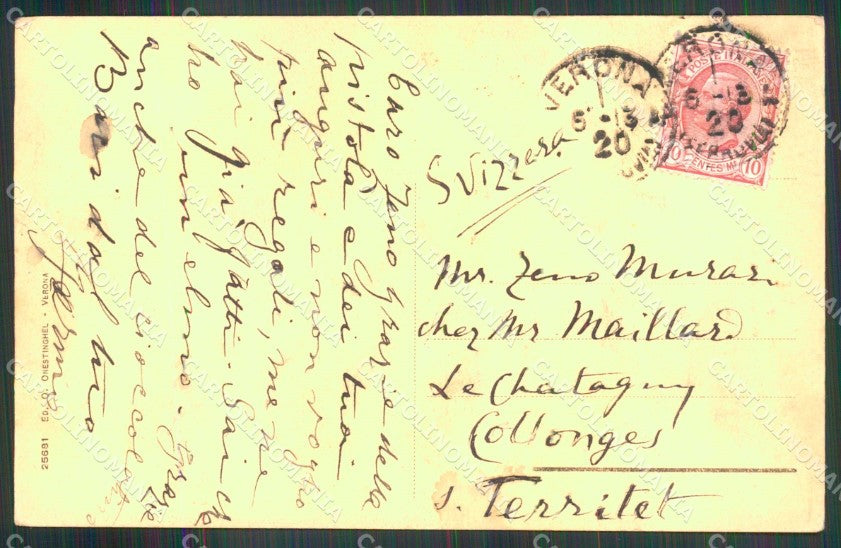 Caro Zeno grazie della
pistola e dei tuoi
auguri e non voglio
più regali, me ne
hai già fatti. Sai che
ho un elmo. Grazie
anche del cioccolato
Baci dal tuo
Svizzera
Mr. Zeno Murari
chez Mr Maillard
Le Chatagny
Collonges
s. Territet
VERONA
6-13
20
VERONA
6-13
20
POSTE ITALIANE
10
CENTESMI
10
25681 ED. D. ONESTINGHEL - VERONA
CARTOLINOMANIA